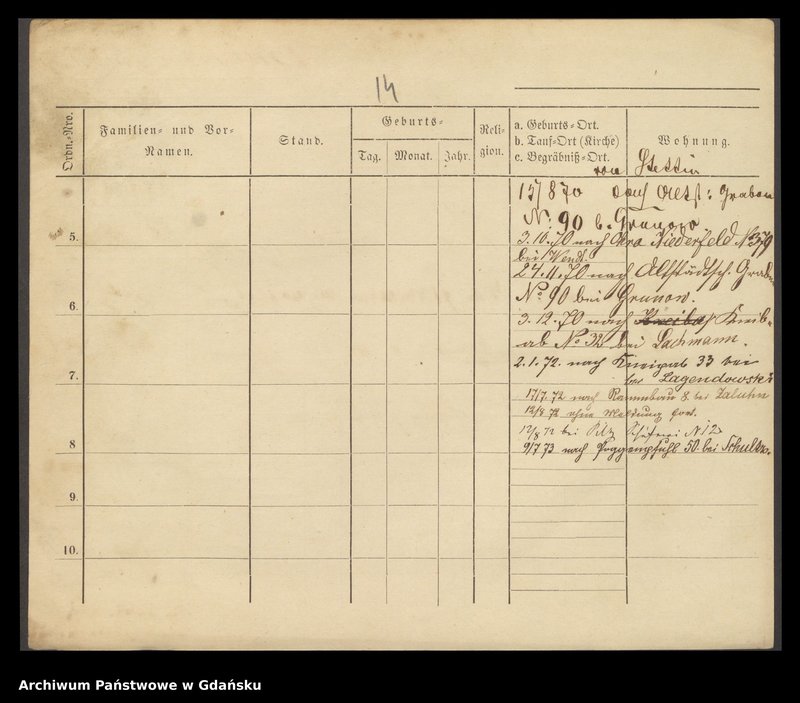 14
Ordn.-Nro.
Familien- und Vor-
Namen.
Stand.
Geburts-
Tag.
Monat.
Jahr.
Reli-
gion.
a. Geburts-Ort.
b. Tauf-Ort (Kirche)
c. Begräbniß-Ort.
Wohnung.
von Stettin
15/8 70 nach Altst: Graben
No: 90 b. Grunow
3.10.70 nach Ohra Niederfeld No 379
bei Wendt.
24.11.70 nach Altstädtsch. Graben
No 90 bei Grunow.
3.12.70 nach Kneib-
ab No 32 bei Lachmann.
2.1.72. nach Kneipab 33 bei
Lagendowski
17/7.72 nach Rammbau 8. bei Zaluhn
12/8 72 ohne Meldung fort.
12/8 72 bei No 12
9/7 73 nach Poggenpfuhl 50. bei Schultz.
5.
6.
7.
8
9.
10.
Archiwum Państwowe w Gdańsku